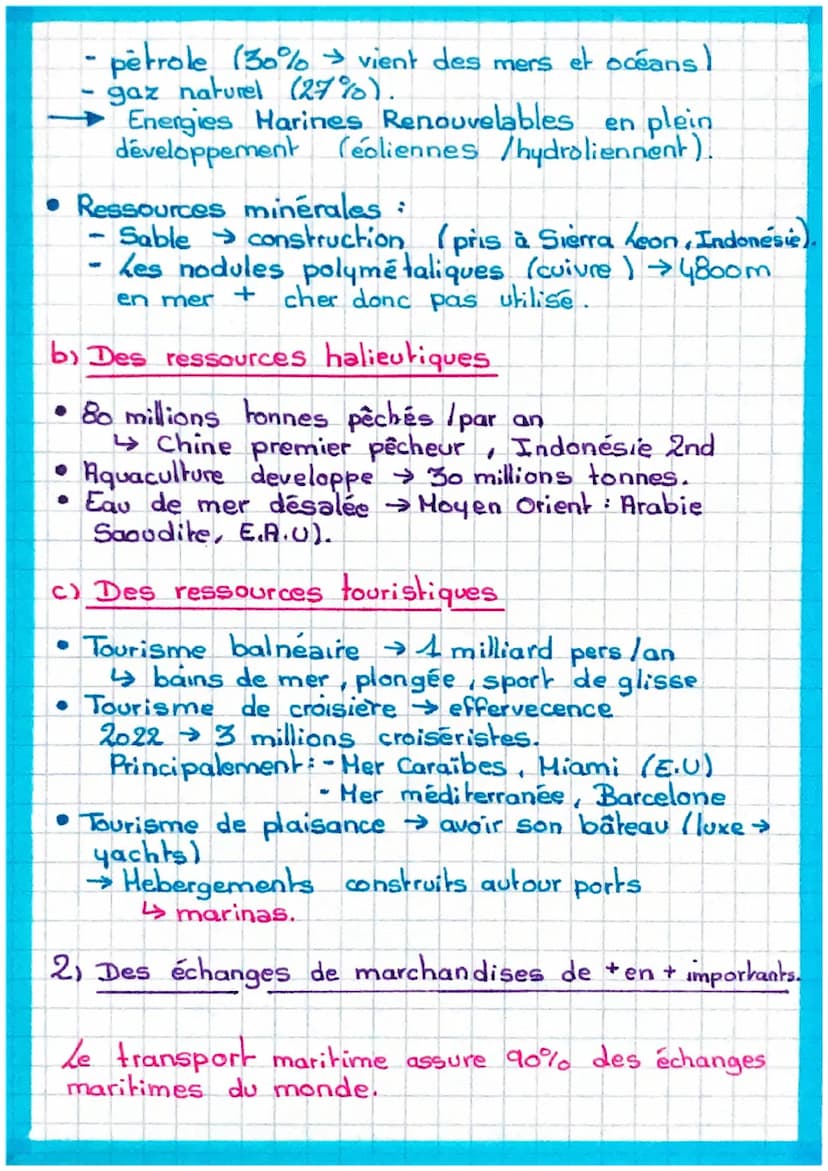 - pétrole (30% → vient des mers et océans)
- gaz naturel (27%).
→ Energies Marines Renouvelables en plein
développement (éoliennes /hydroliennent).
• Ressources minérales :
- Sable → construction (pris à Sierra Leon, Indonésie).
- Les nodules polymétaliques (cuivre) → 4800m
en mer + cher donc pas utilisé.
b) Des ressources halieutiques
• 80 millions tonnes pêchés /par an
↳ Chine premier pêcheur, Indonésie 2nd
• Aquaculture developpe → 30 millions tonnes.
• Eau de mer désalée → Moyen Orient : Arabie
Saoudite, E.A.U).
c) Des ressources touristiques
• Tourisme balnéaire → 1 milliard pers/an
↳ bains de mer, plongée, sport de glisse
• Tourisme de croisière → effervecence
2022 → 3 millions croisiéristes.
Principalement : - Mer Caraïbes, Miami (E.U)
- Mer méditerranée, Barcelone
• Tourisme de plaisance → avoir son bâteau (luxe →
yachts)
→ Hebergements construits autour ports
↳ marinas.
2) Des échanges de marchandises de + en + importants.
Le transport maritime assure 90% des échanges
maritimes du monde.